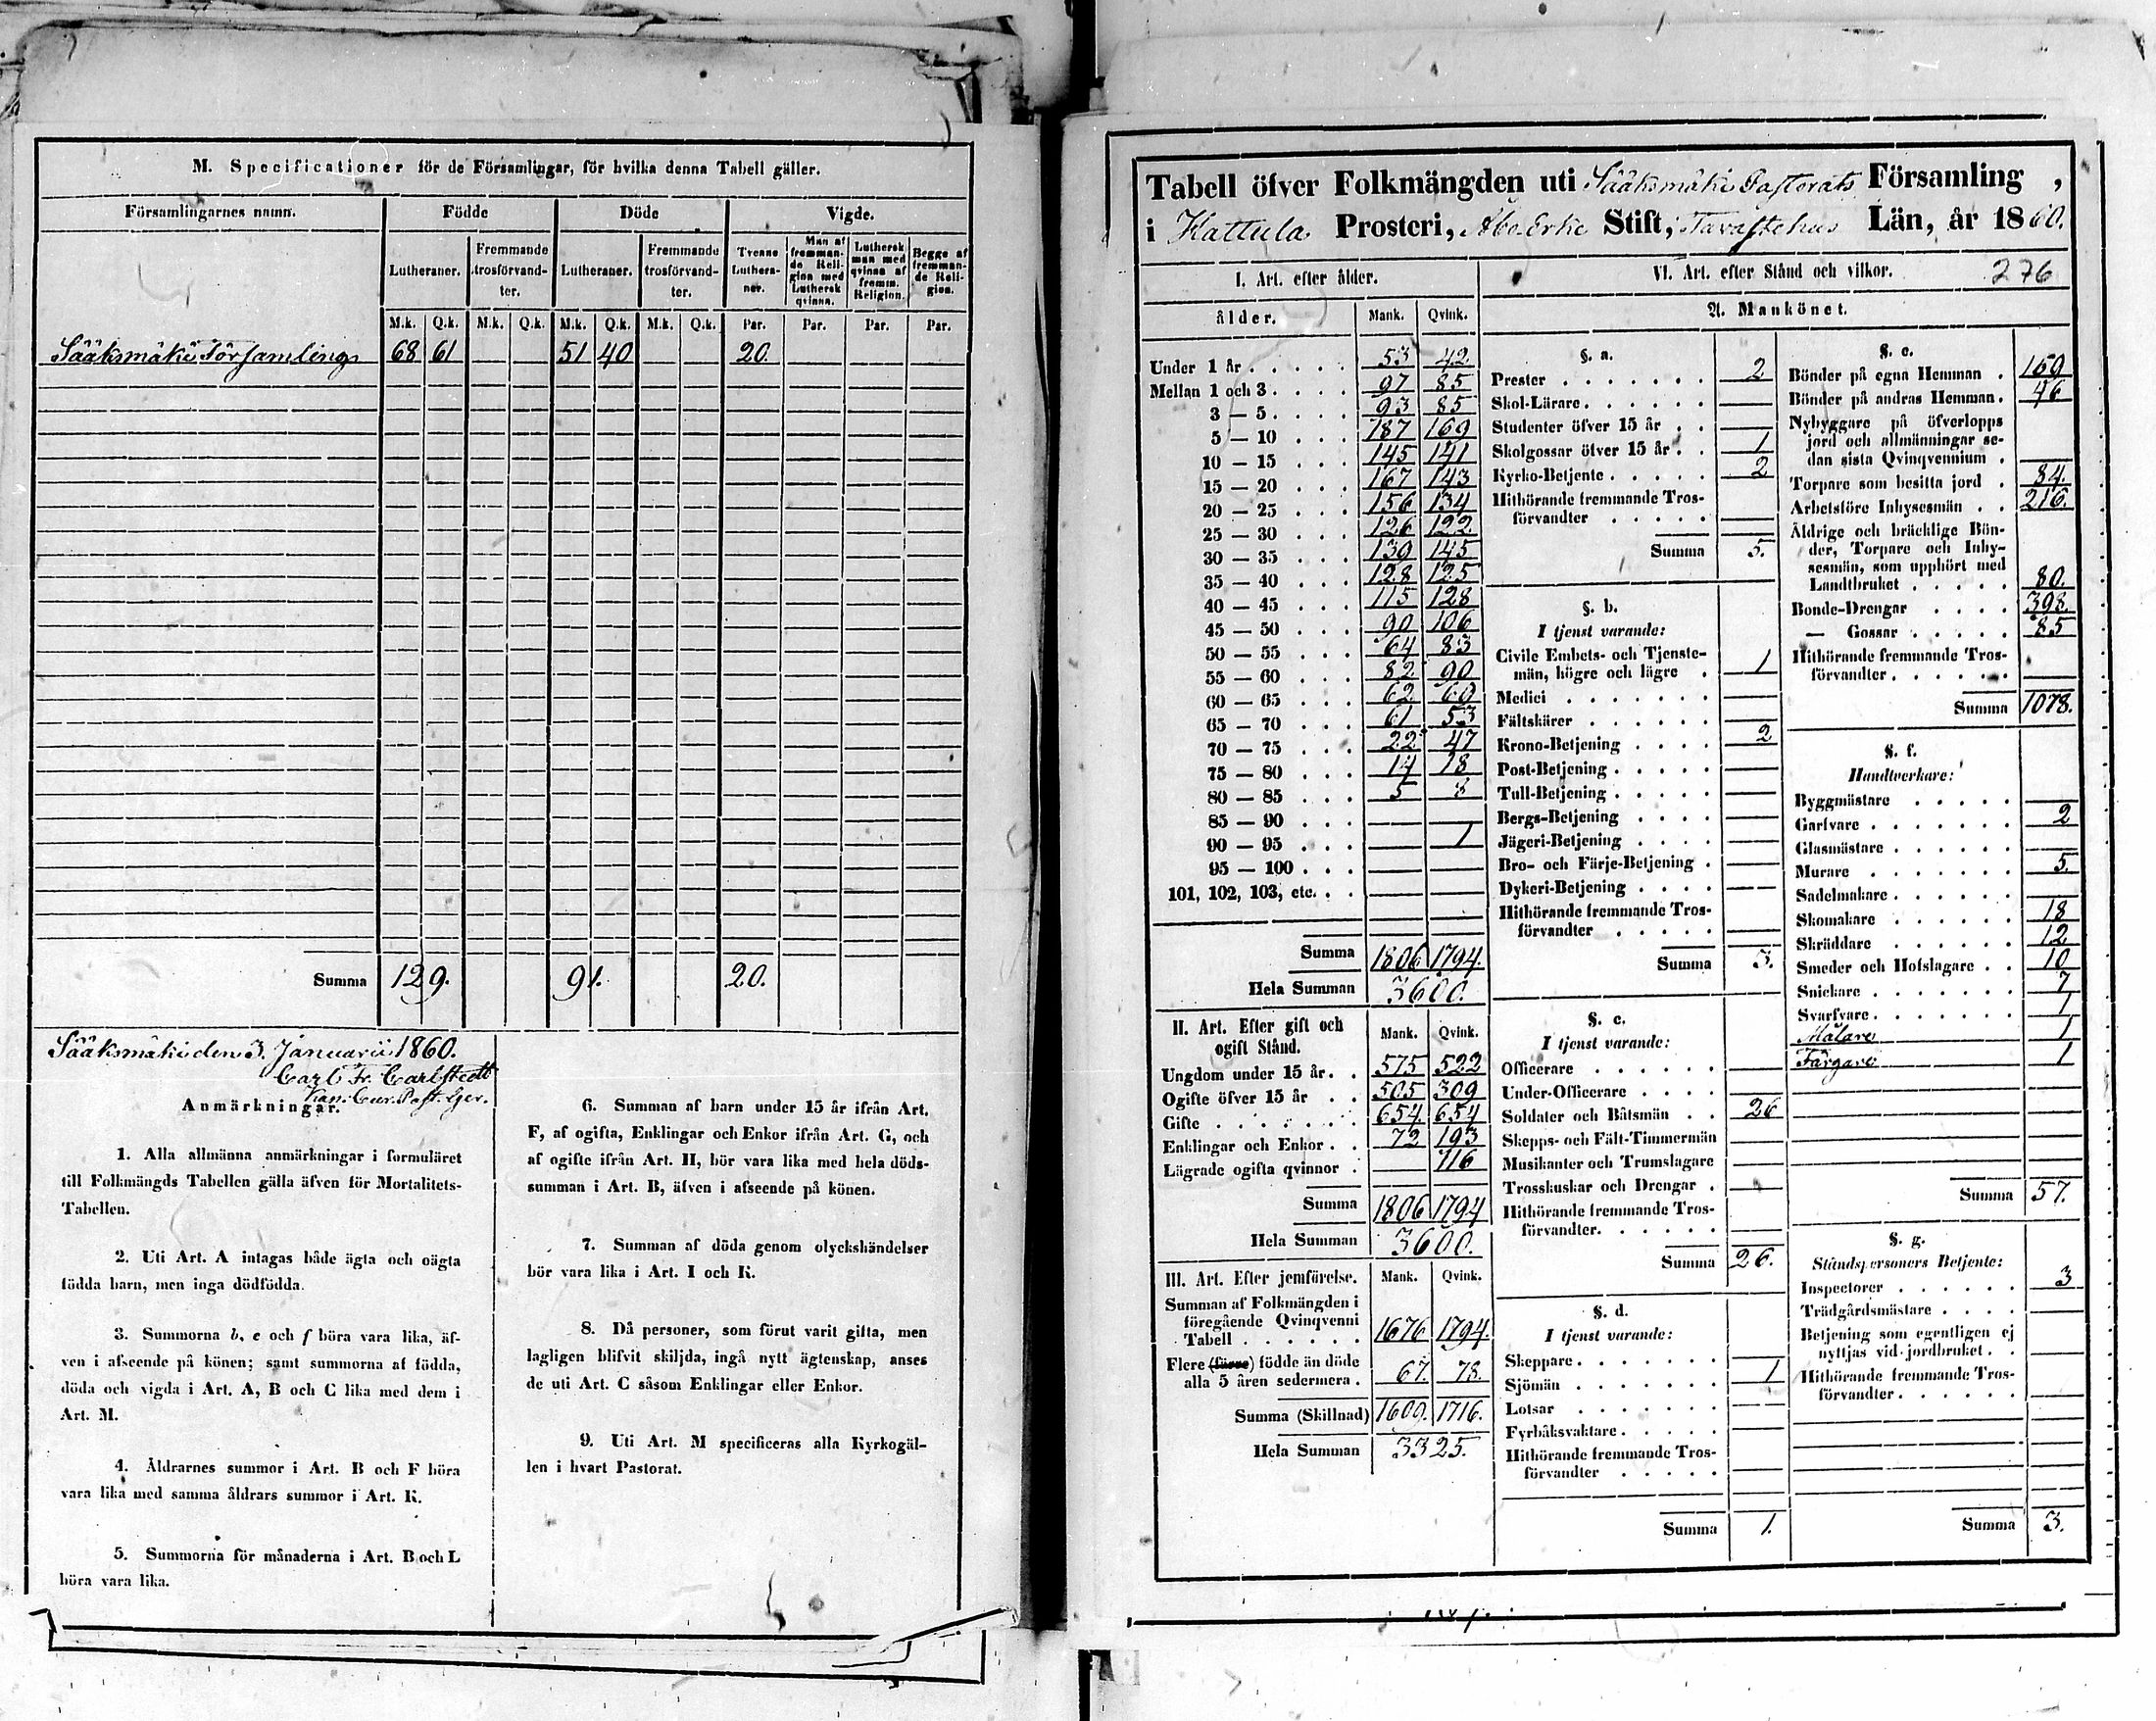 M. Specificationer för de Församlingar, för hvilka denna Tabell gäller.
Församlingarnes namn. Födde Döde Vigde.
Lutheraner. Fremmande trosförvandter. Lutheraner. Fremmande trosförvandter. Tvenne Lutheraner. Man af fremmande Religion med Luthersk qvinna. Luthersk man med qvinna af fremm. Religion. Begge af fremmande Religion.
M.k. Q.k. M.k. Q.k. M.k. Q.k. M.k. Q.k. Par. Par. Par. Par.
Sääksmäki Församling 68 61 51 40 20
Summa 129. 91. 20.
Sääksmäki den 3 Januarii 1860.
Carl Fr. Carlstedt
Cur. Past. Ger.
Anmärkningar.
1. Alla allmänna anmärkningar i formuläret
till Folkmängds Tabellen gälla äfven för Mortalitets-
Tabellen.
2. Uti Art. A intagas både ägta och oägta
födda barn, men inga dödfödda.
3. Summorna b, e och f böra vara lika, äf-
ven i afseende på könen; samt summorna af födda,
döda och vigda i Art. A, B och C lika med dem i
Art. M.
4. Åldrarnes summor i Art. B och F böra
vara lika med samma åldrars summor i Art. K.
5. Summorna för månaderna i Art. B och L
böra vara lika.
6. Summan af barn under 15 år ifrån Art.
F, af ogifta, Enklingar och Enkor ifrån Art. G, och
af ogifte ifrån Art. H, bör vara lika med hela döds-
summan i Art. B, äfven i afseende på könen.
7. Summan af döda genom olyckshändelser
bör vara lika i Art. I och K.
8. Då personer, som förut varit gifta, men
lagligen blifvit skiljda, ingå nytt ägtenskap, anses
de uti Art. C såsom Enklingar eller Enkor.
9. Uti Art. M specificeras alla Kyrkogäl-
len i hvart Pastorat.
Tabell öfver Folkmängden uti Sääksmäki Pastorats Församling,
i Hattula Prosteri, Åbo Erke Stift, Tavastehus Län, år 1860.
I. Art. efter ålder.
ålder. Mank. Qvink.
Under 1 år 53 42
Mellan 1 och 3 97 85
3 — 5 93 85
5 — 10 187 169
10 — 15 145 141
15 — 20 167 143
20 — 25 156 134
25 — 30 126 122
30 — 35 139 145
35 — 40 128 125
40 — 45 115 128
45 — 50 90 106
50 — 55 64 83
55 — 60 82 90
60 — 65 62 69
65 — 70 61 53
70 — 75 22 47
75 — 80 14 18
80 — 85 5 8
85 — 90
90 — 95 1
95 — 100
101, 102, 103, etc.
Summa 1806 1794.
Hela Summan 3600.
II. Art. Efter gift och ogift Stånd. Mank. Qvink.
Ungdom under 15 år 575 522
Ogifte öfver 15 år 505 309
Gifte 654 654
Enklingar och Enkor 72 193
Lägrade ogifta qvinnor 116
Summa 1806 1794
Hela Summan 3600.
III. Art. Efter jemförelse. Mank. Qvink.
Summan af Folkmängden i
föregående Qvinqvenni
Tabell 1676 1794.
Flere (färre) födde än döde
alla 5 åren sedermera 67. 78.
Summa (Skillnad) 1609. 1716.
Hela Summan 3325.
VI. Art. efter Stånd och vilkor. 276
A. Mankönet.
§. a.
Prester 2
Skol-Lärare
Studenter öfver 15 år
Skolgossar öfver 15 år 1
Kyrko-Betjente 2
Hithörande fremmande Tros-
förvandter
Summa 5.
§. b.
I tjenst varande:
Civile Embets- och Tjenste-
män, högre och lägre 1
Medici
Fältskärer
Krono-Betjening 2
Post-Betjening
Tull-Betjening
Bergs-Betjening
Jägeri-Betjening
Bro- och Färje-Betjening
Dykeri-Betjening
Hithörande fremmande Tros-
förvandter
Summa 3.
§. c.
I tjenst varande:
Officerare
Under-Officerare
Soldater och Båtsmän 26
Skepps- och Fält-Timmermän
Musikanter och Trumslagare
Trosskuskar och Drengar
Hithörande fremmande Tros-
förvandter
Summa 26.
§. d.
I tjenst varande:
Skeppare
Sjömän 1
Lotsar
Fyrbåksvaktare
Hithörande fremmande Tros-
förvandter
Summa 1.
§. e.
Bönder på egna Hemman 169
Bönder på andras Hemman 46
Nybyggare på öfverlopps
jord och allmänningar se-
dan sista Qvinqvennium
Torpare som besitta jord 84.
Arbetsföre Inhysesmän 216.
Äldrige och bräcklige Bön-
der, Torpare och Inhy-
sesmän, som upphört med
Landtbruket 80.
Bonde-Drengar 398.
— Gossar 85
Hithörande fremmande Tros-
förvandter
Summa 1078.
§. f.
Handtverkare:
Byggmästare
Garfvare 2
Glasmästare
Murare 5.
Sadelmakare
Skomakare 18
Skräddare 12
Smeder och Hofslagare 10
Snickare 7
Svarfvare 1
Målare 1
Färgare 1
Summa 57.
§. g.
Ståndspersoners Betjente:
Inspectorer 3
Trädgårdsmästare
Betjening som egentligen ej
nyttjas vid jordbruket
Hithörande fremmande Tros-
förvandter
Summa 3.